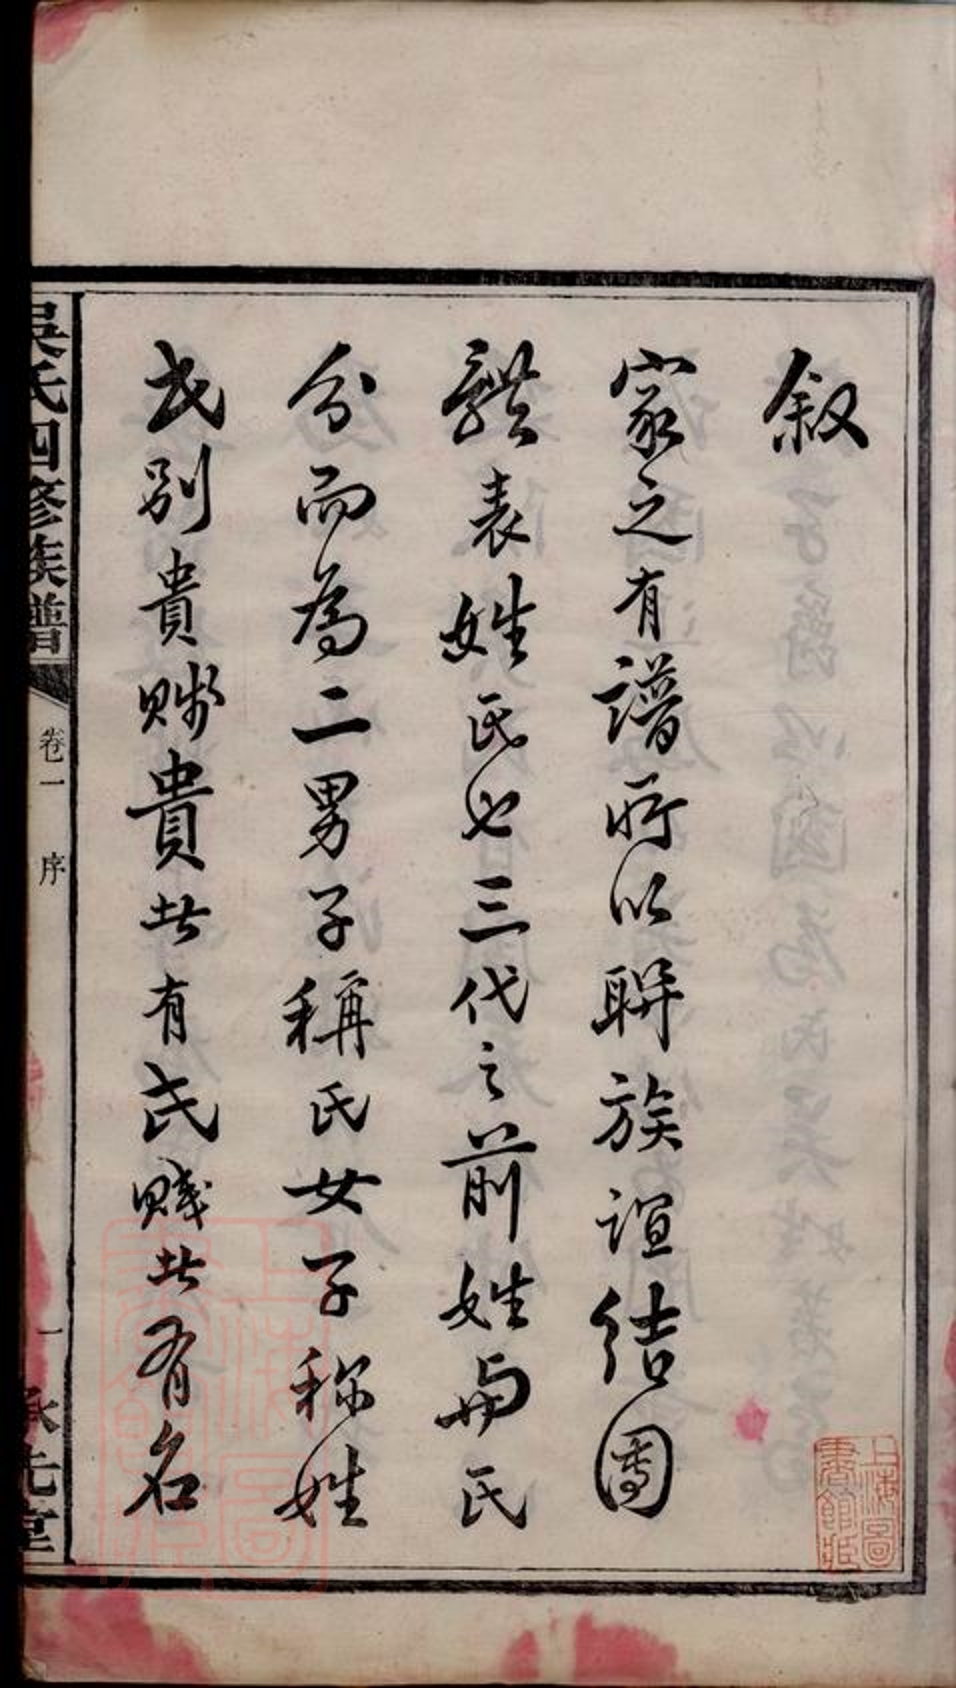 叙
家之有譜所以聯族誼結團
體表姓氏也三代之前姓與氏
分而為二男子稱氏女子称姓
氏別貴賤貴者有氏賤者有名
吳氏四修族譜
卷一 序
一
承先堂
上海圖書館藏